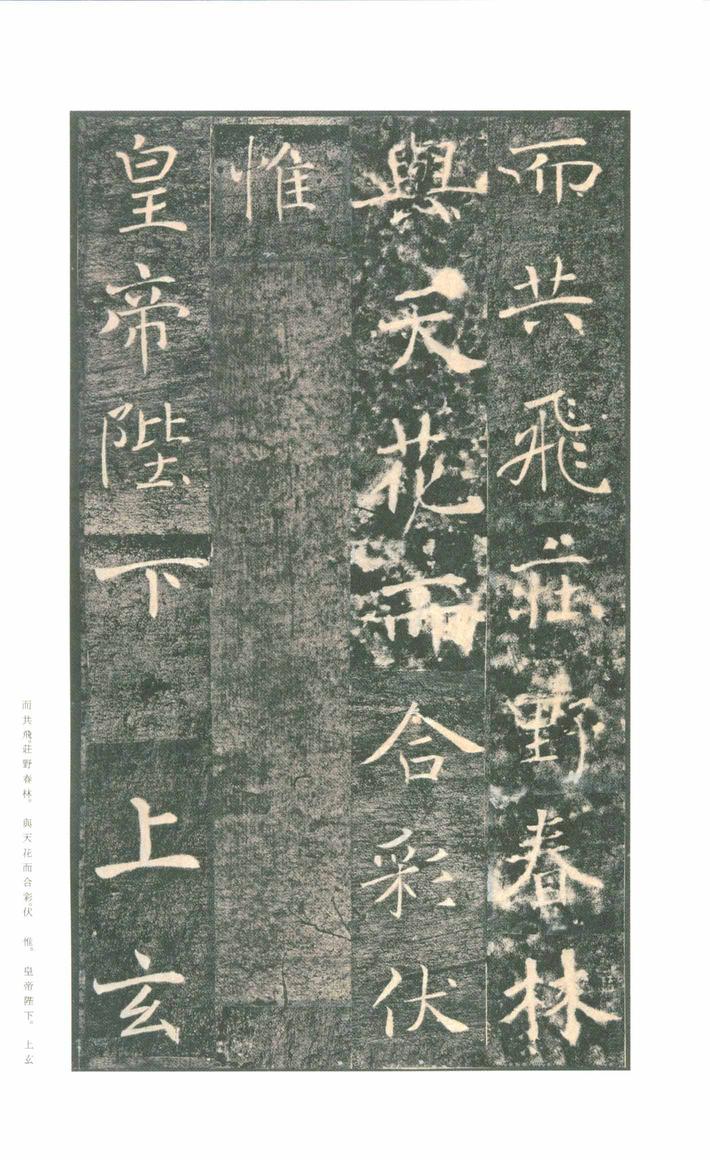 而共飛莊野春林
與天花而合彩伏
惟
皇帝陛下上玄
而共飛。莊野春林。與天花而合彩。伏惟。皇帝陛下。上玄